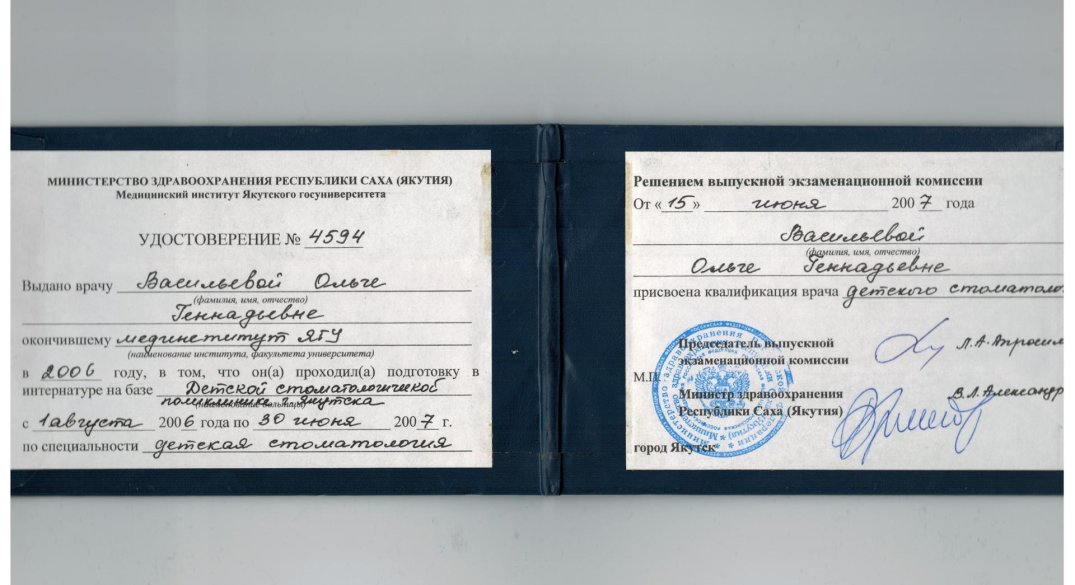 МИНИСТЕРСТВО ЗДРАВООХРАНЕНИЯ РЕСПУБЛИКИ САХА (ЯКУТИЯ)
Медицинский институт Якутского госуниверситета
УДОСТОВЕРЕНИЕ № 4594
Выдано врачу Васильевой Ольге
(фамилия, имя, отчество)
Геннадьевне
окончившему мединститут ЯГУ
(наименование института, факультета университета)
в 2006 году, в том, что он(а) проходил(а) подготовку в
интернатуре на базе Детской стоматологической
поликлиника г. Якутска
с 1 августа 2006 года по 30 июня 2007 г.
по специальности детская стоматология
Решением выпускной экзаменационной комиссии
От «15» июня 2007 года
Васильевой
(фамилия, имя, отчество)
Ольге Геннадьевне
присвоена квалификация врача детского стоматоло
Председатель выпускной
экзаменационной комиссии
Л.А.
М.П.
Министр здравоохранения
Республики Саха (Якутия)
В.Л. Александр
город Якутск